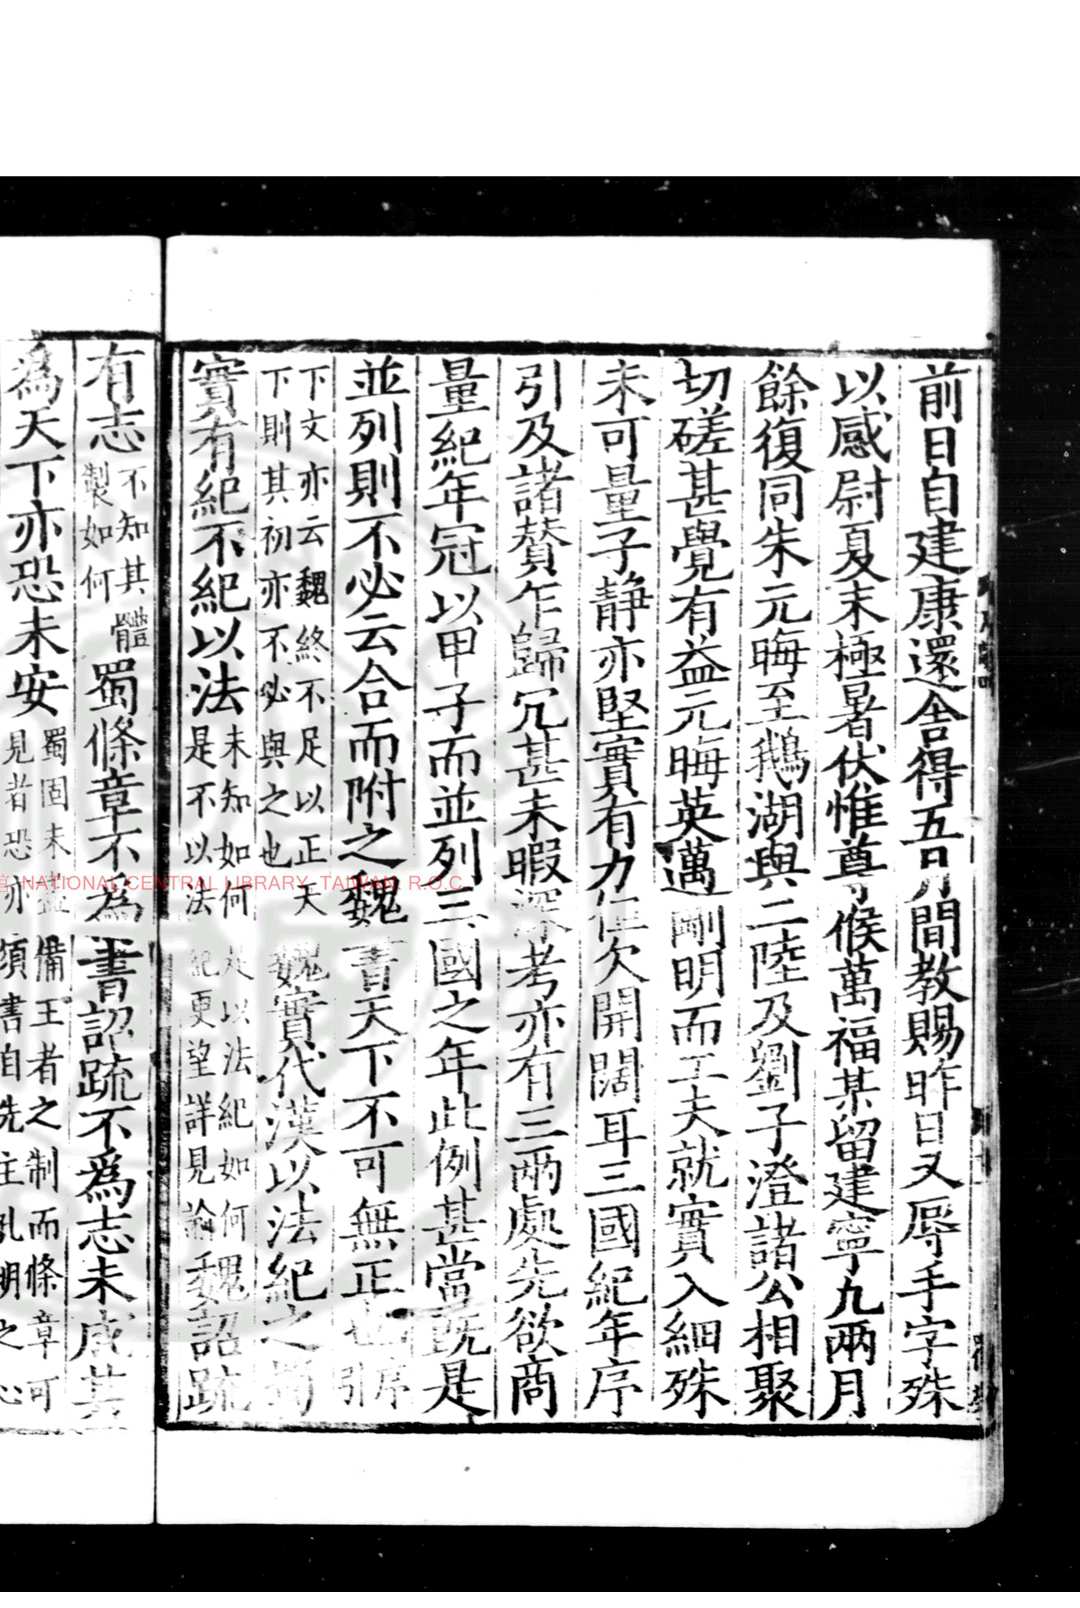 前日自建康還舍得五月間教賜昨日又辱手字殊
以感尉夏末極暑伏惟尊候萬福某留建寧凡兩月
餘復同朱元晦至鵝湖與二陸及劉子澄諸公相聚
切磋甚覺有益元晦英邁剛明而工夫就實入細殊
未可量子靜亦堅實有力但欠開闊耳三國紀年序
引及諸贊乍歸冗甚未暇深考亦有三兩處先欲商
量紀年冠以甲子而並列三國之年此例甚當既是
並列則不必云合而附之魏書天下不可無正也序引
下文亦云魏終不足以正天
下則其初亦不必與之也魏實代漢以法紀之蜀
實有紀不紀以法未知如何是以法紀如何
是不以法紀更望詳見諭魏詔疏
有志不知其體
製如何蜀條章不為書詔疏不為志未成其
為天下亦恐未安蜀固未盡備王者之制而條章可
見者恐亦須書自先主孔明之心
NATIONAL CENTRAL LIBRARY, TAIWAN, R.O.C.